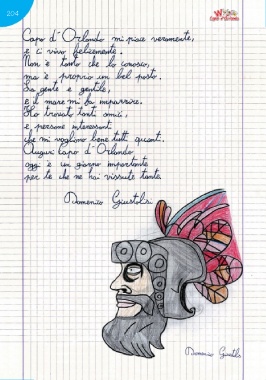 204
W
Capo d'Orlando
Capo d'Orlando mi piace veramente,
e ci vivo felicemente.
Non è tanto che lo conosco,
ma è proprio un bel posto.
La gente è gentile,
e il mare mi fa impazzire.
Ho trovato tanti amici,
e persone interessanti
che mi vogliono bene tutti quanti.
Auguri Capo d'Orlando
oggi è un giorno importante
per te che ne hai vissute tante.
Domenico Giustolisi
Domenico